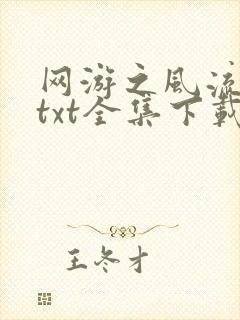 网游之风流
txt全集下载
王冬才